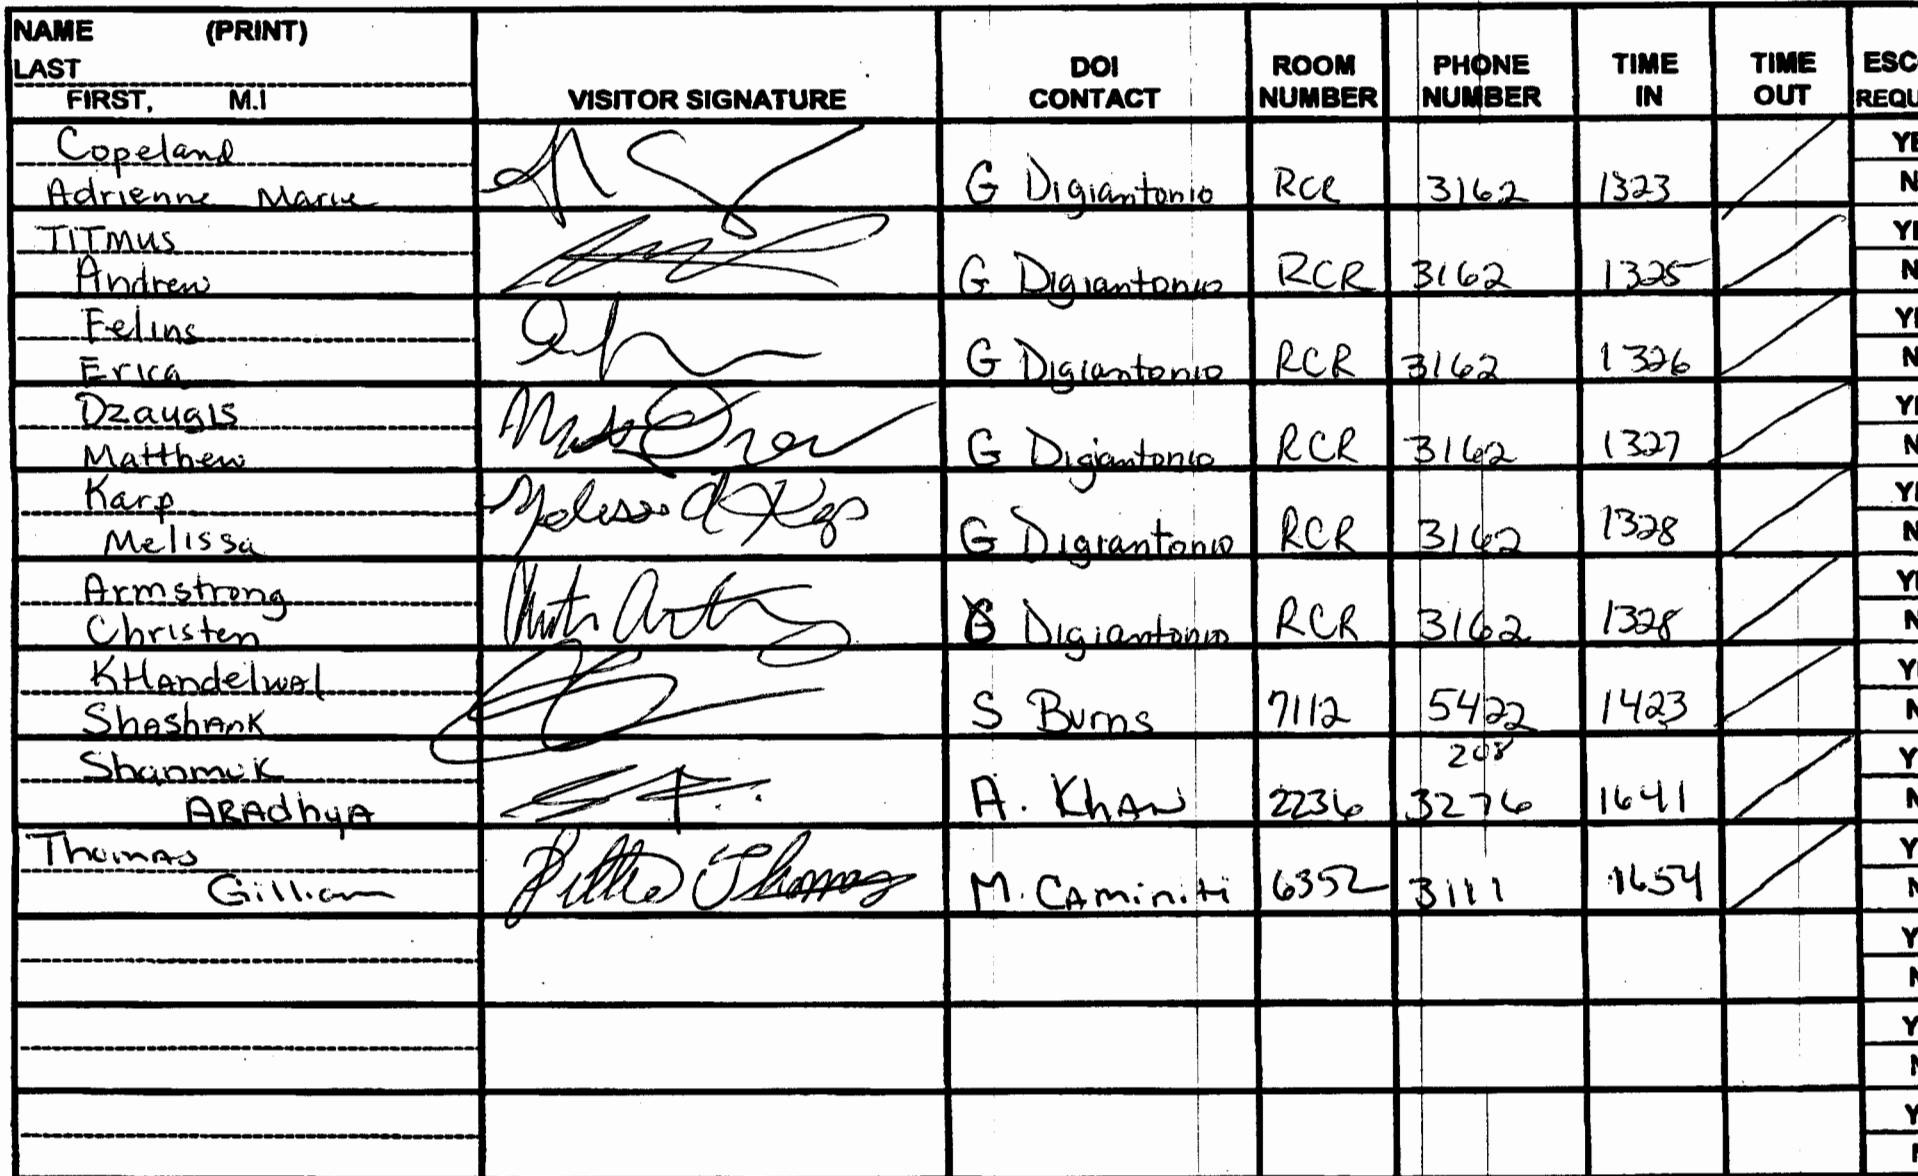 NAME (PRINT)
LAST
FIRST, M.I
VISITOR SIGNATURE
DOI CONTACT
ROOM NUMBER
PHONE NUMBER
TIME IN
TIME OUT
ESC
REQU
Copeland
Adrienne Marie G Digiantonio RCR 3162 1323
TITMUS
Andrew G Digiantonio RCR 3162 1325
Felins
Erica G Digiantonio RCR 3162 1326
Dzaugis
Matthew G Digiantonio RCR 3162 1327
Karp
Melissa G Digiantonio RCR 3162 1328
Armstrong
Christen G Digiantonio RCR 3162 1328
KHAndelwAl
ShAshAnK S Burns 7112 5422 1423
Shanmuk 208
ARAdhyA A. KhAN 2236 3276 1641
Thomas
Gillian M. CAminiti 6352 3111 1654